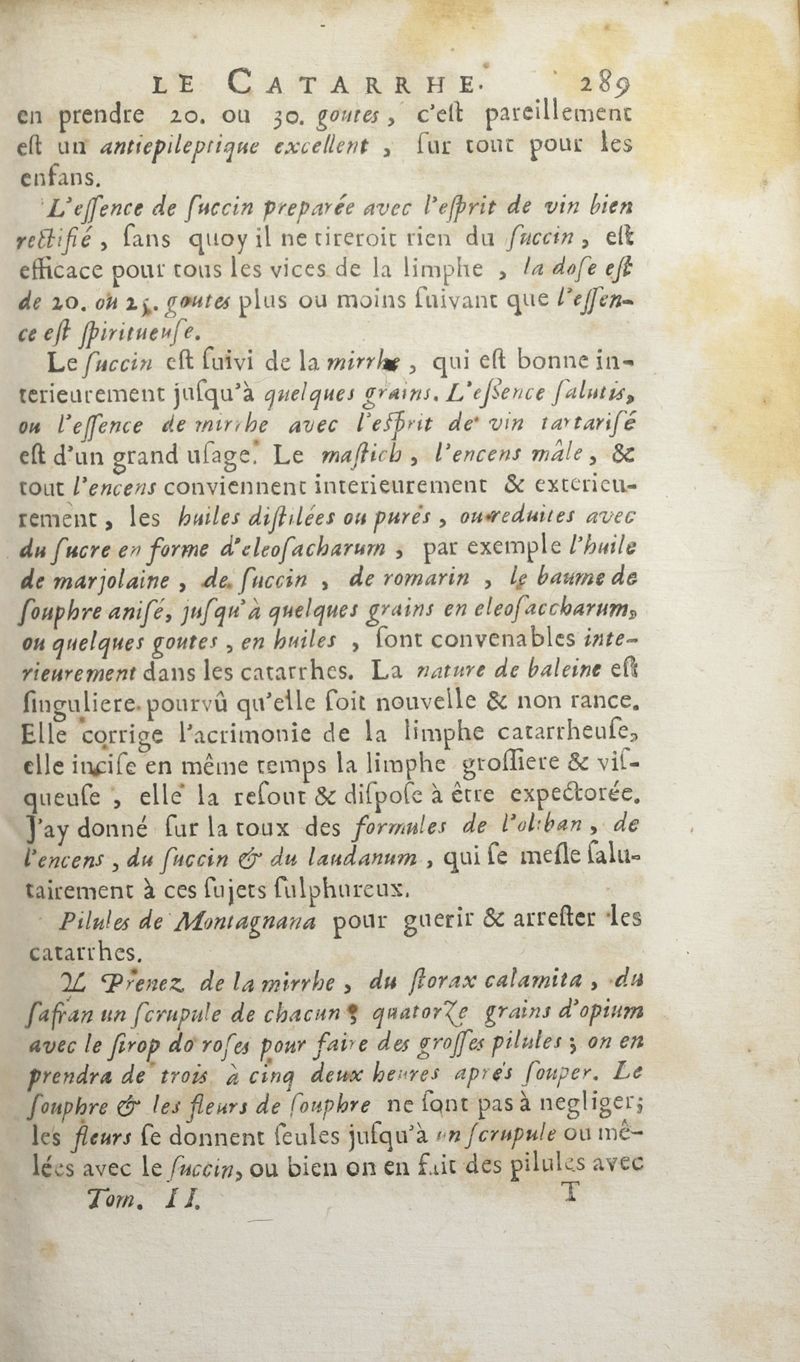 LE CATARRHE. 289
en prendre 20. ou 30. goutes, c'eſt pareillement
eſt un antiepileptique excellent, ſur tout pour les
enfans.
L'eſſence de ſuccin preparée avec l'eſprit de vin bien
rectifié, ſans quoy il ne tireroit rien du ſuccin, eſt
efficace pour tous les vices de la limphe, la doſe eſt
de 20. ou 25. goutes plus ou moins ſuivant que l'eſſen-
ce eſt ſpiritueuſe.
Le ſuccin eſt ſuivi de la mirrhe, qui eſt bonne in-
terieurement juſqu'à quelques grains. L'eſſence ſalutis,
ou l'eſſence de mirrhe avec l'eſprit de vin tartariſé
eſt d'un grand uſage. Le maſtich, l'encens mâle, &
tout l'encens conviennent interieurement & exterieu-
rement, les huiles diſtilées ou purés, ou reduites avec
du ſucre en forme d'eleoſacharum, par exemple l'huile
de marjolaine, de ſuccin, de romarin, le baume de
ſouphre aniſé, juſqu'à quelques grains en eleoſaccharum,
ou quelques goutes, en huiles, ſont convenables inte-
rieurement dans les catarrhes. La nature de baleine eſt
ſinguliere pourvû qu'elle ſoit nouvelle & non rance.
Elle corrige l'acrimonie de la limphe catarrheuſe,
elle inciſe en même temps la limphe groſſiere & viſ-
queuſe, elle la reſout & diſpoſe à être expectorée.
J'ay donné ſur la toux des formules de l'oliban, de
l'encens, du ſuccin & du laudanum, qui ſe meſle ſalu-
tairement à ces ſujets ſulphureux.
Pilules de Montagnana pour guerir & arreſter les
catarrhes.
♃ Prenez de la mirrhe, du ſtorax calamita, du
ſafran un ſcrupule de chacun; quatorze grains d'opium
avec le ſirop do roſes pour faire des groſſes pilules; on en
prendra de trois à cinq deux heures aprés ſouper. Le
ſouphre & les fleurs de ſouphre ne ſont pas à negliger;
les fleurs ſe donnent ſeules juſqu'à un ſcrupule ou mê-
lées avec le ſuccin, ou bien on en fait des pilules avec
Tom. II. T